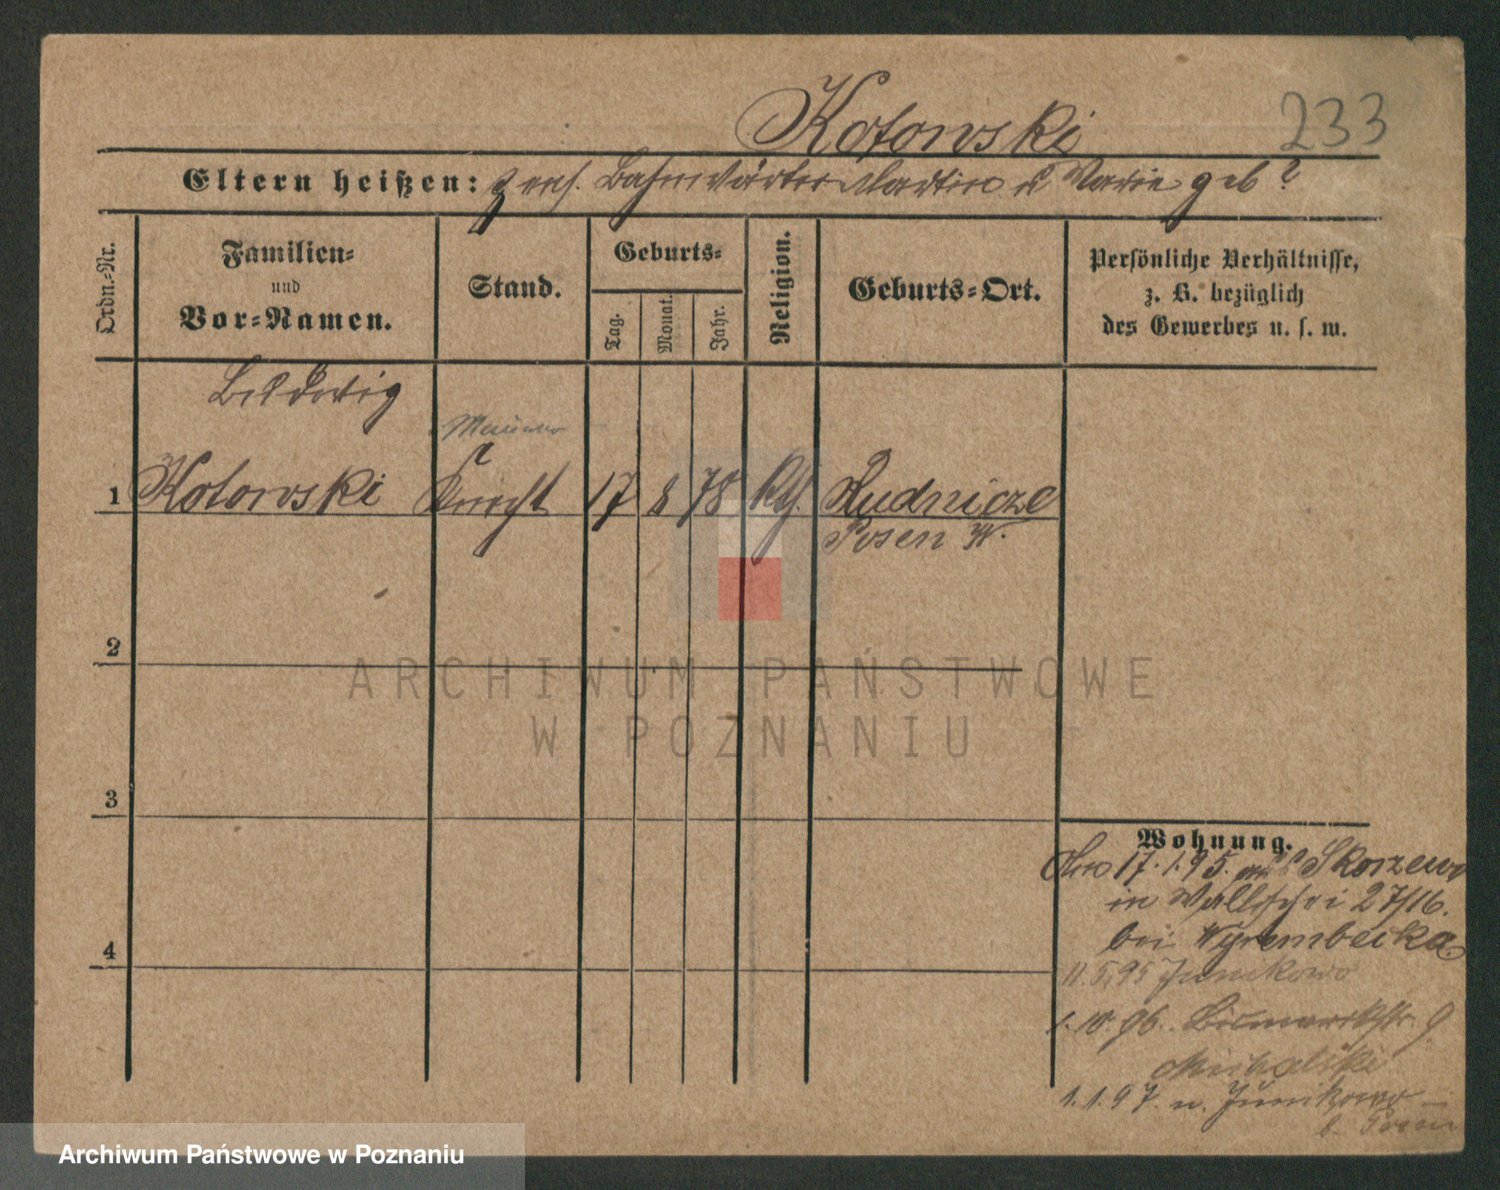 Kotowski 233
Eltern heißen: Bahnwärter Martin u Marie geb?
Ordn.-Nr.
Familien-
und
Vor-Namen.
Stand.
Geburts-
Tag.
Monat.
Jahr.
Religion.
Geburts-Ort.
Persönliche Verhältnisse,
z. B. bezüglich
des Gewerbes u. s. w.
Ludwig
Maurer
1 Kotowski Knecht 17 8 78 Kth. Rudnicze
Posen W.
2
3
4
Wohnung.
17.1.95. Skorzewo
in Wallischei 27/16.
bei Wyrembecka
11.5.95 Junikowo
1.10.96. Bismarckstr. 9
Michalski
1.1.97. n. Junikowo
b. Posen
ARCHIWUM PAŃSTWOWE
W POZNANIU
Archiwum Państwowe w Poznaniu